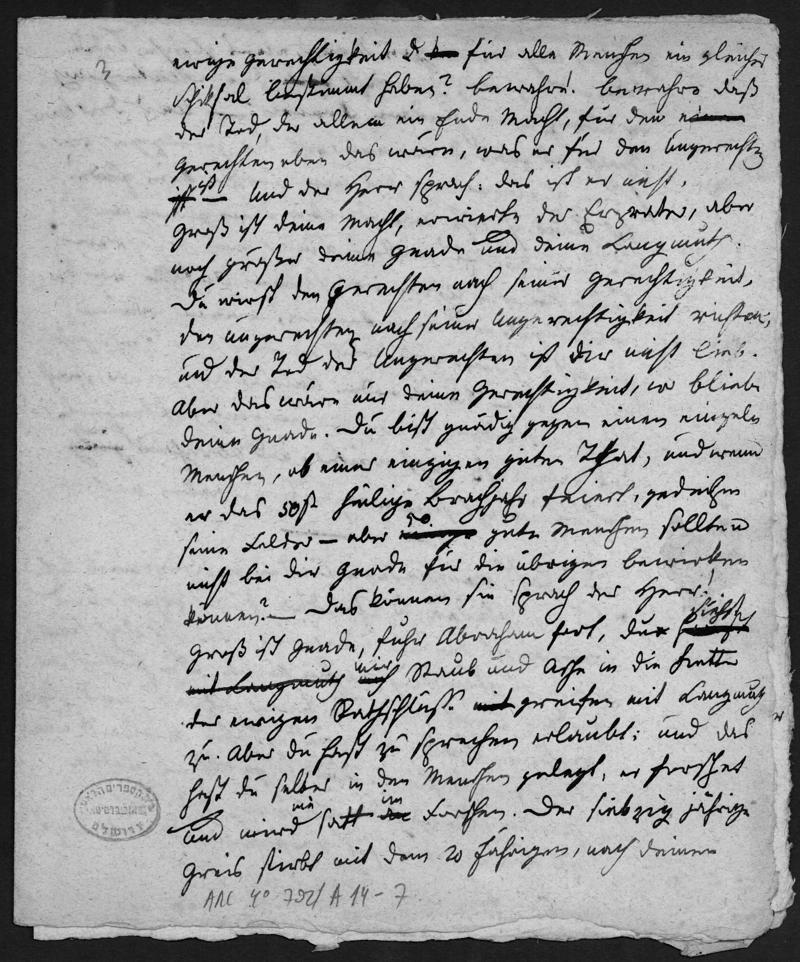 3
ewige Gerechtigkeit für alle Menschen ein gleiches
Schiksal bestimmt haben? bewahre! bewahre daß
der Tod, der allem ein Ende Macht, für den einen
gerechten eben das wäre, was er für den Ungerechten
ist — Und der Herr sprach: das ist er nicht.
Groß ist deine Macht, erwiederte der Erzvater, aber
noch größer deine Gnade und deine Langmuth.
Du wirst den Gerechten nach seiner Gerechtigkeit,
den ungerechten nach seiner Ungerechtigkeit richten,
und der Tod des Ungerechten ist dir nicht lieb.
Aber das wäre nur deine Gerechtigkeit, wo bliebe
deine Gnade. Du bist gnädig gegen einen einzeln
Menschen, ob einer einzigen guten That, und wenn
er das 50st heilige Brachjahr feiert, gedeihen
seine Felder — aber 50 gute Menschen sollten
nicht bei dir Gnade für die übrigen bewirken
können? — Das können sie sprach der Herr!
Groß ist Gnade, fuhr Abraham fort, du siehst
mit Langmuth mir Staub und Asche in die Kette
der ewigen Rathschlüsse greifen mit Langmuth
zu. Aber du hast zu sprechen erlaubt: und das
hast du selber in den Menschen gelegt, er forschet
und wird nie satt im Forschen. Der siebzig jährige
Greis stirbt mit dem 20 Jährigen, nach deinem
ARC 4° 792/A 14-7